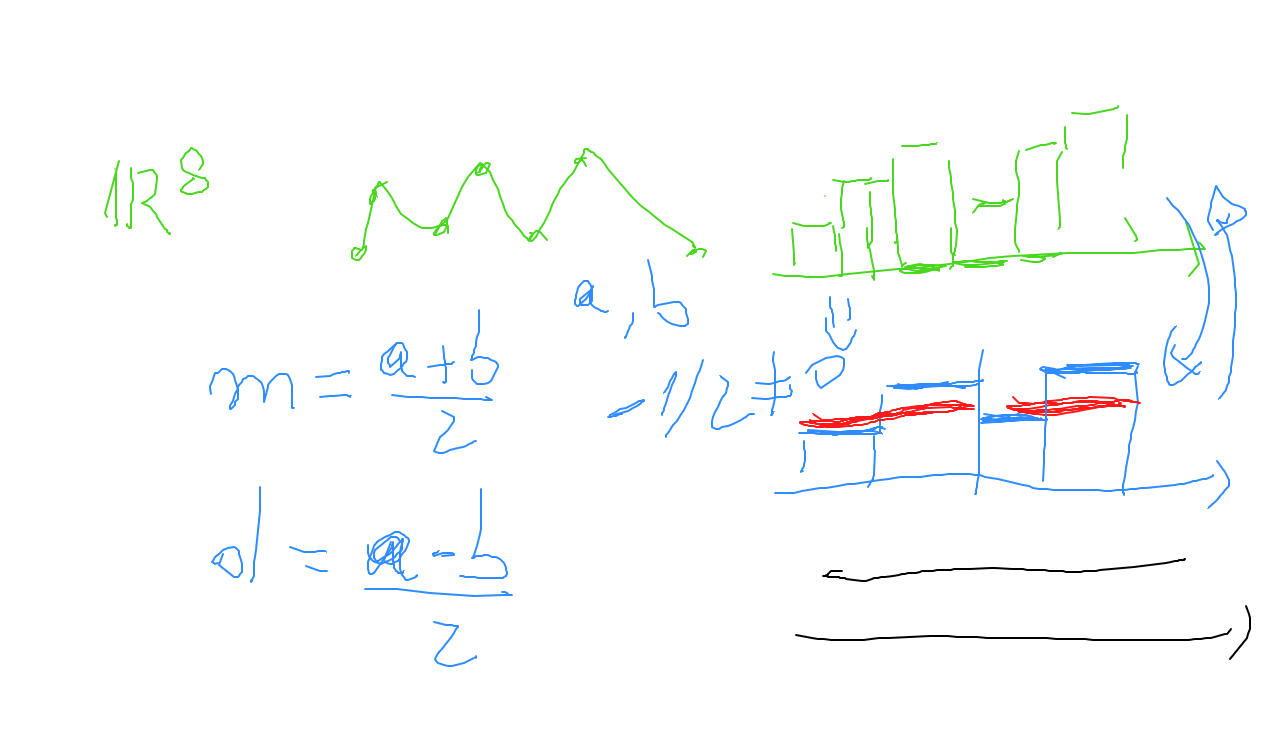 ℝ⁸
a, b
m = (a + b)/2
-1/2 ≠ 0
d = (a - b)/2